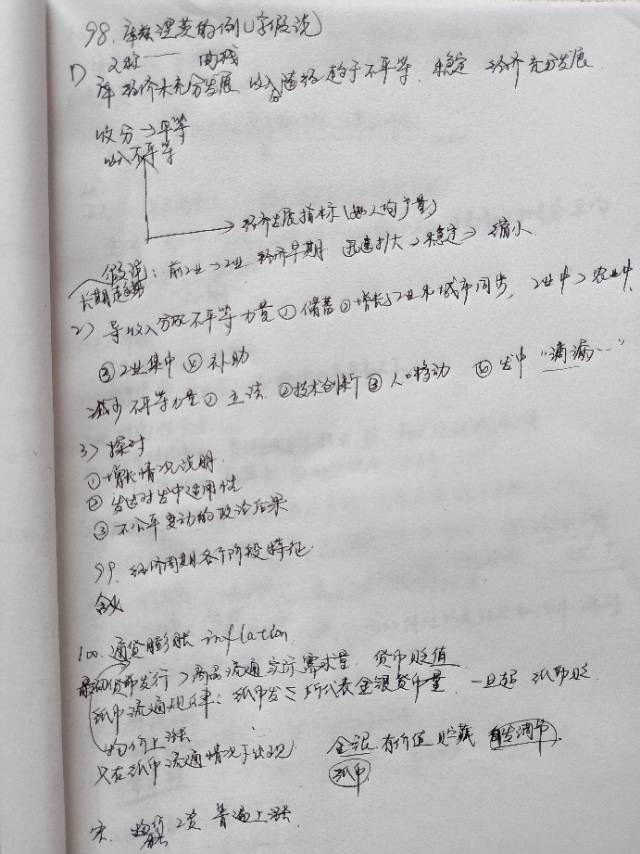 98. 库兹涅茨的倒U字假说
1) 又称—— 曲线
库 经济未充分发展 收入 趋于不平等. 稳定 经济充分发展
收分→平等
收入不平等
→经济发展指标(如人均产量)
假说: 前工业→工业 经济早期 迅速扩大→稳定→缩小
长期趋势
2) 导收入分配不平等力量 ① 储蓄 ② 增长与工业和城市同步, 工业中>农业中,
③工业集中 ④ 补助
减少 不平等力量 ① 立法 ②技术创新 ③ 人口移动 发中 "滴漏…"
3) 探讨
①增长情况说明
② 发达对发中适用性
③ 不公平变动的政治后果
99. 经济周期各个阶段特征.
含义
100. 通货膨胀 inflation.
货币发行>商品流通实际需求量, 货币贬值
纸币流通规律: 纸币发≤所代表金银货币量. 一旦超 纸币贬
物价上涨
只在纸币流通情况下出现 金银 有价值 贮藏 自发调节
纸币
宋. 物价 工资 普遍上涨.